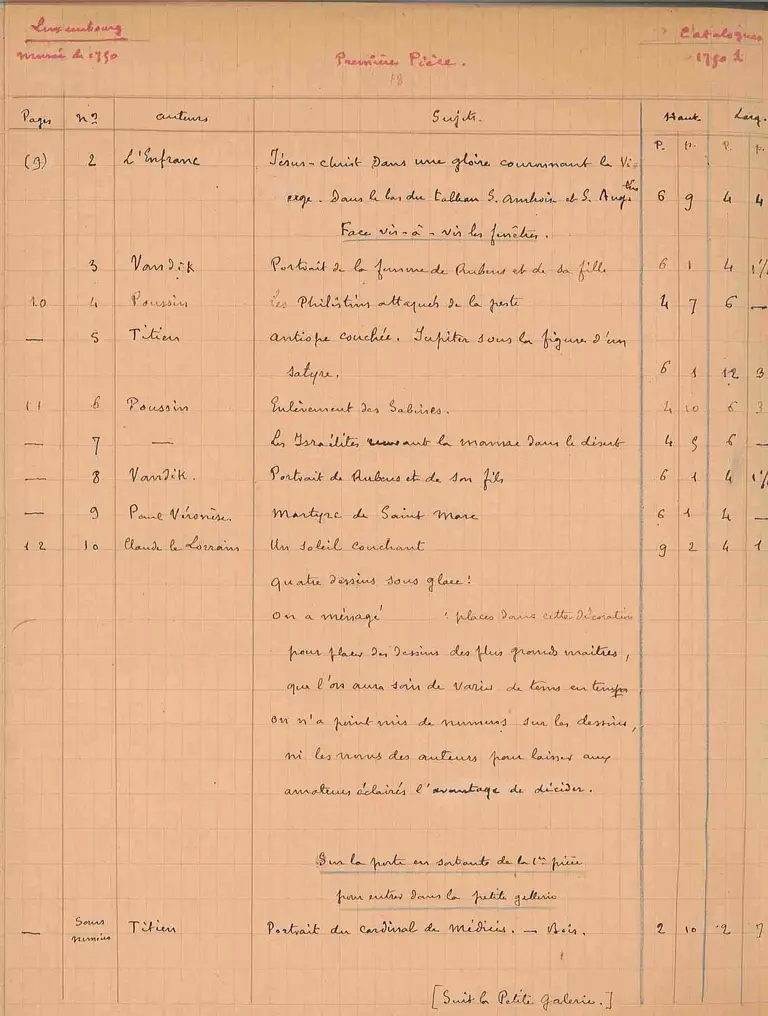 Luxembourg
musée de 1750
Catalogues
1750
Première Pièce.
18
Pages nº auteurs Sujets. Haut Larg.
P. p. P. p.
(9) 2 L'Enfranc Jésus-christ Dans une gloire couronnant la Vi=
erge. Dans le bas du tableau S. Ambrois et S. Augtin 6 9 4 4
Face vis-à-vis les fenêtres.
3 Vandik Portrait de la femme de Rubens et de sa fille 6 1 4 1½
10 4 Poussin Les Philistins attaqués de la peste 4 7 6 —
— 5 Titien antiope couchée. Jupiter sous la figure d'un
satyre. 6 1 12 3
11 6 Poussin Enlèvement des Sabines. 4 10 6 3
— 7 — Les Israélites ramassant la manne dans le désert 4 5 6 —
— 8 Vandik. Portrait de Rubens et de son fils 6 1 4 1½
— 9 Paul Véronèse Martyre de Saint Marc 6 1 4 —
12 10 Claude le Lorrain Un soleil couchant 9 2 4 1
quatre dessins sous glace :
On a ménagé : places dans cette décoration
pour placer des dessins des plus grands maîtres,
que l'on aura soin de varier de tems en temps
on n'a point mis de numeros sur les dessins,
ni les noms des auteurs pour laisser aux
amateurs éclairés l'avantage de décider.
Sur la porte en sortant de la 1re pièce
pour entrer dans la petite gallerie
— Sans numéro Titien Portrait du cardinal de Médicis. — Bois. 2 10 2 7
[Suit la Petite Galerie.]